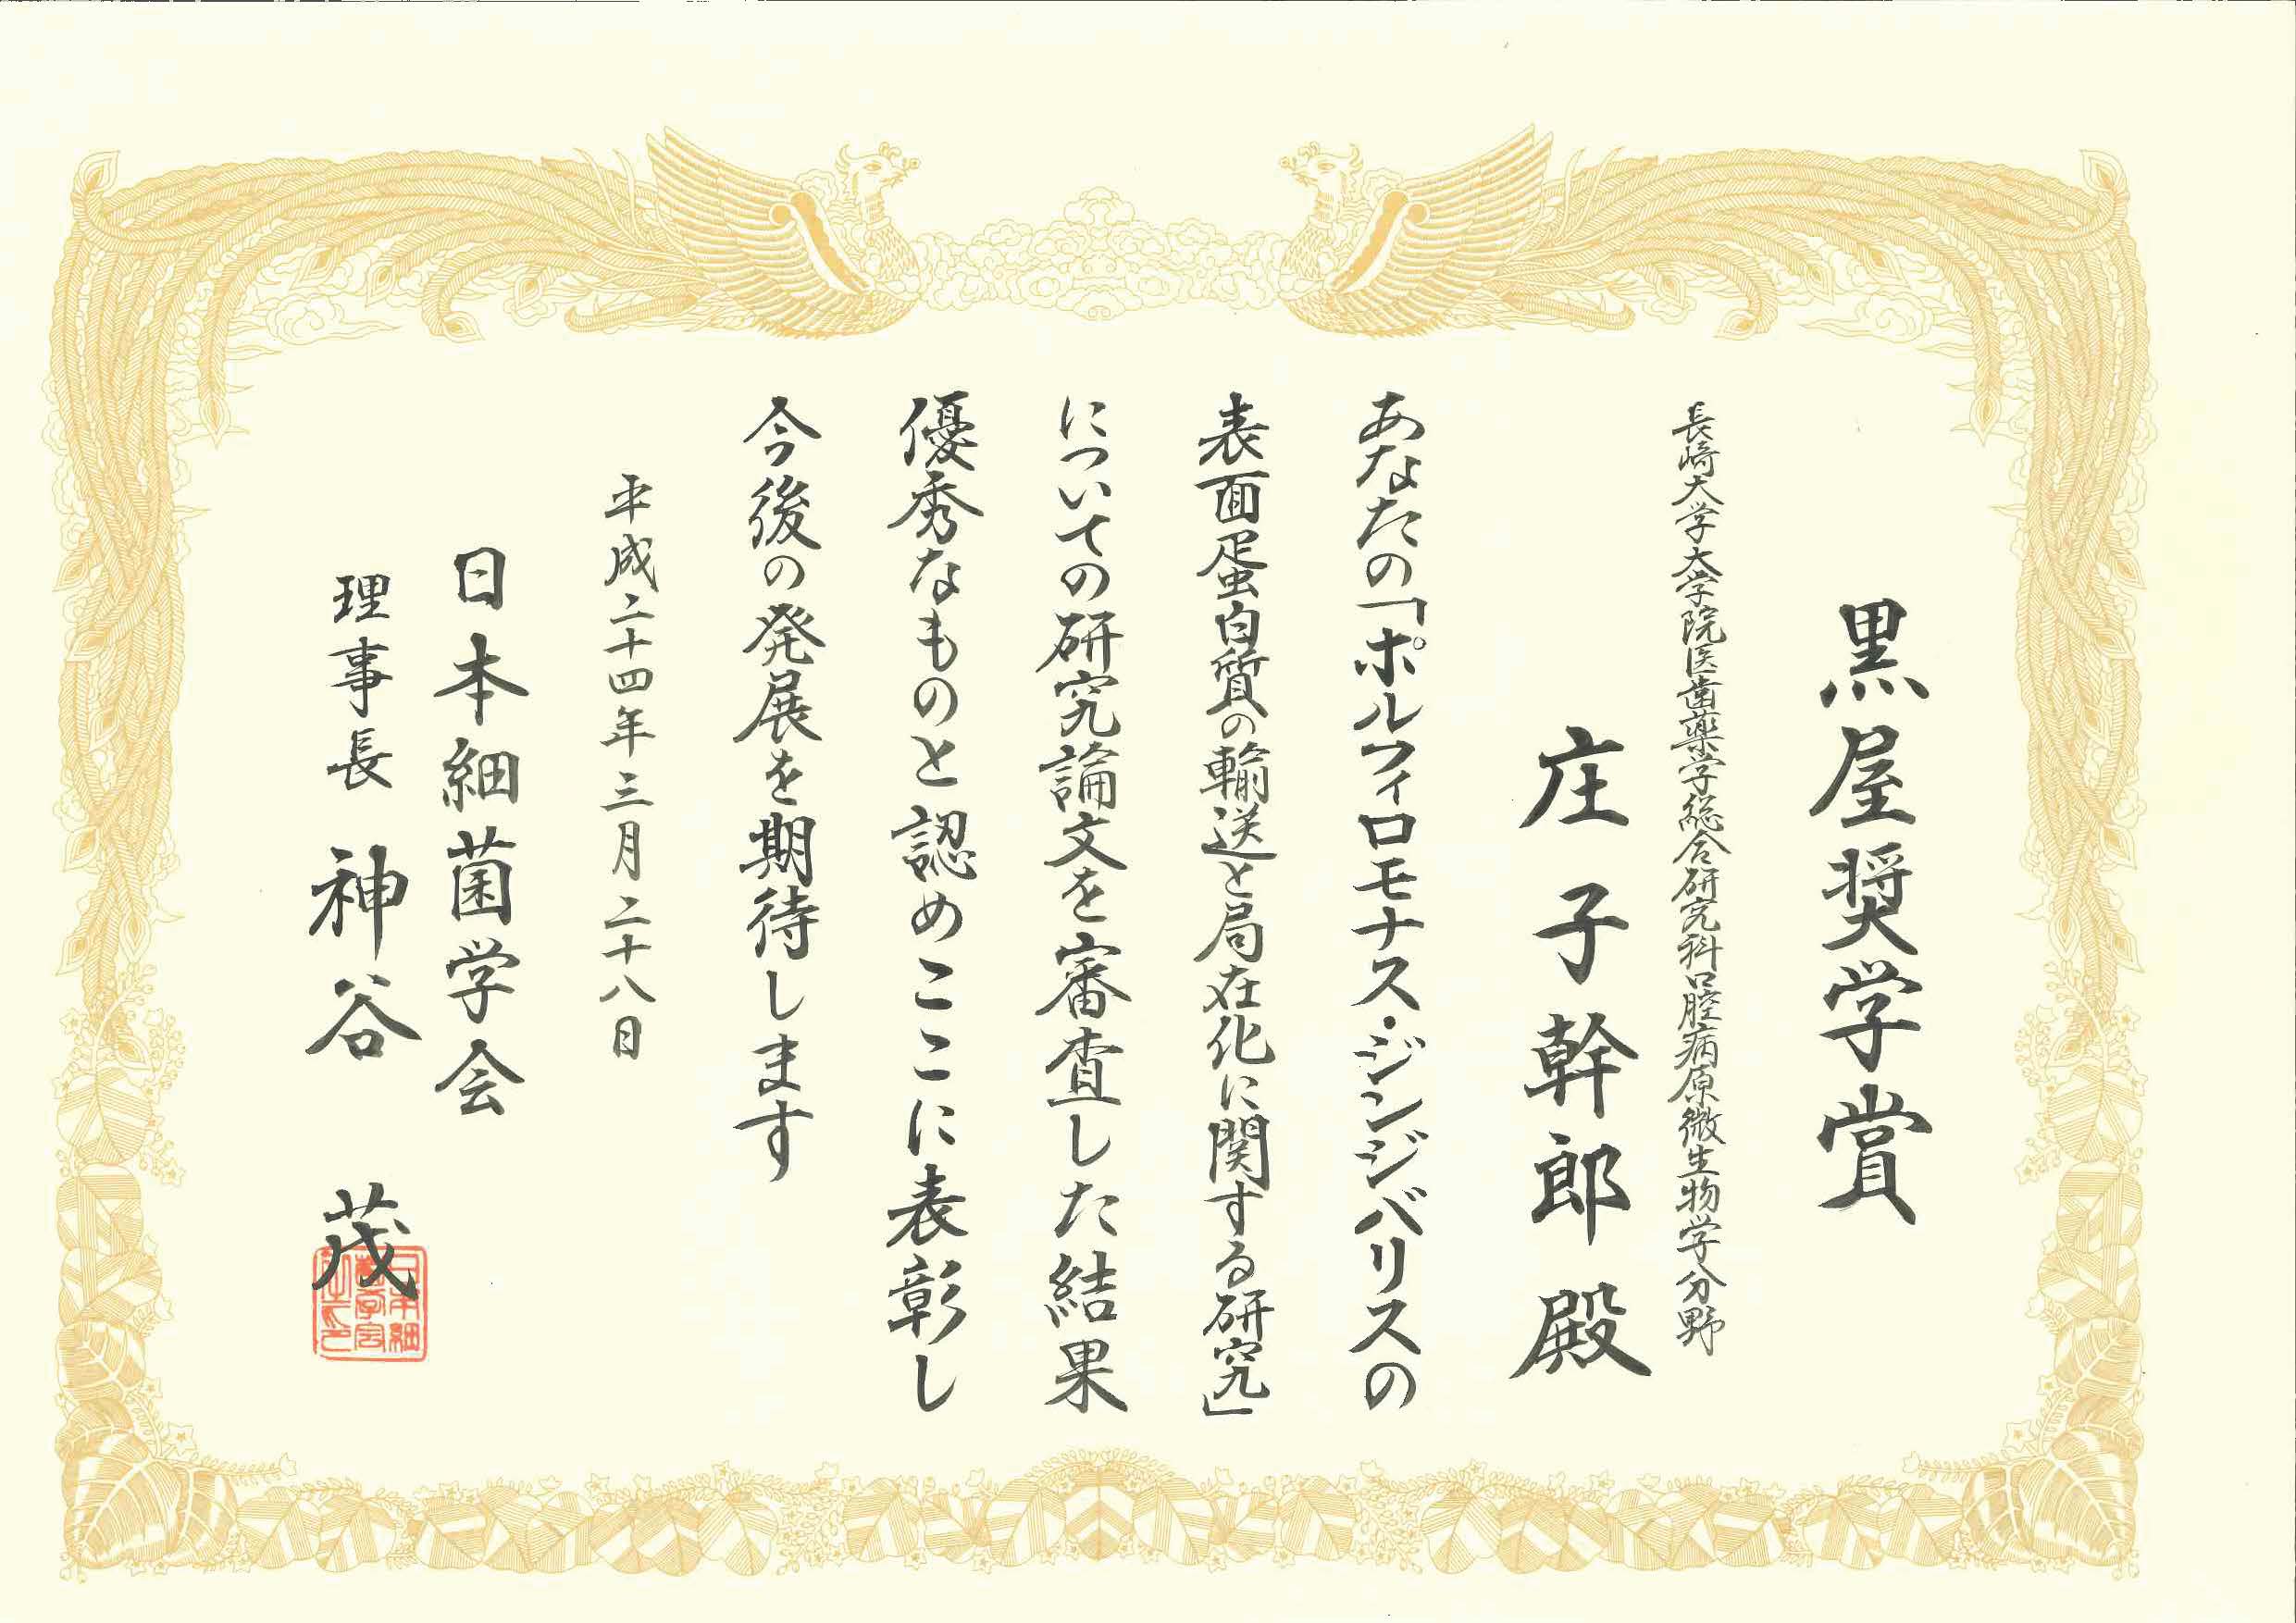 黒屋奨学賞
長崎大学大学院医歯薬学総合研究科口腔病原微生物学分野
庄子幹郎殿
あなたの「ポルフィロモナス・ジンジバリスの
表面蛋白質の輸送と局在化に関する研究」
についての研究論文を審査した結果
優秀なものと認めここに表彰し
今後の発展を期待します
平成二十四年三月二十八日
日本細菌学会
理事長 神谷 茂